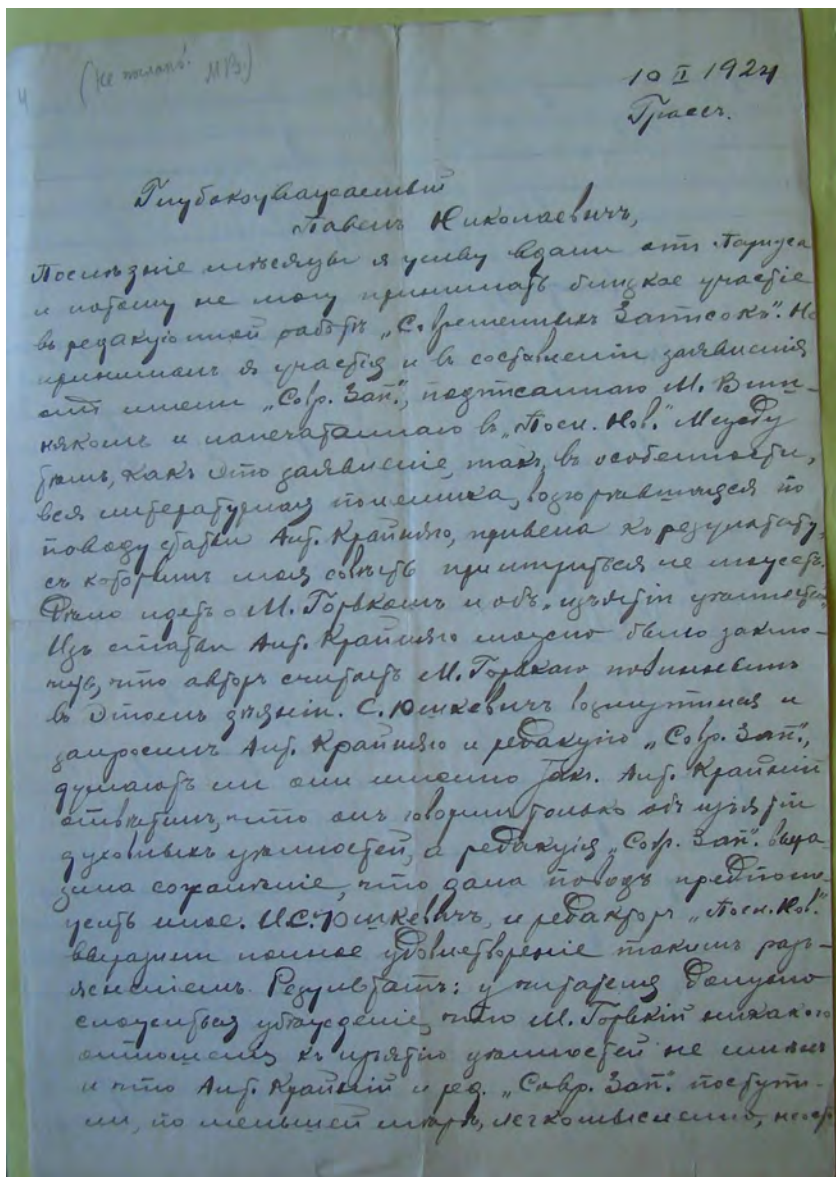 4 (Не послано! МВ.)
10 I 1924
Грассъ.
Глубокоуважаемый
Павелъ Николаевичъ,
Последніе мѣсяцы я живу вдали отъ Парижа
и потому не могу принимать близкое участіе
въ редакціонной работѣ „Современныхъ Записокъ". Не
принималъ я участія и въ составленіи заявленія
отъ имени „Совр. Зап.", подписаннаго М. Виш-
някомъ и напечатаннаго въ „Посл. Нов." Между
тѣмъ, какъ это заявленіе, такъ, въ особенности,
вся литературная полемика, возгорѣвшаяся по
поводу статьи Ант. Крайняго, привела къ результату,
съ которымъ моя совѣсть примириться не можетъ.
Дѣло идетъ о М. Горькомъ и объ „изъятіи цѣнностей".
Изъ статьи Ант. Крайняго можно было заклю-
чить, что авторъ считаетъ М. Горькаго повиннымъ
въ этомъ дѣяніи. С. Юшкевичъ возмутился и
запросилъ Ант. Крайняго и редакцію „Совр. Зап.",
думаютъ ли они именно такъ. Ант. Крайній
отвѣтилъ, что онъ говорилъ только объ изъятіи
духовныхъ цѣнностей, а редакція „Совр. Зап." выра-
зила сожалѣніе, что дала поводъ предполо-
жить иное. И С. Юшкевичъ, и редакторъ „Посл. Нов."
выразили полное удовлетвореніе такимъ разъ-
ясненіемъ. Результатъ: у читателя должно
сложиться убѣжденіе, что М. Горькій никакого
отношенія къ изъятію цѣнностей не имѣлъ
и что Ант. Крайній и ред. „Совр. Зап." поступи-
ли, по меньшей мѣрѣ, легкомысленно,